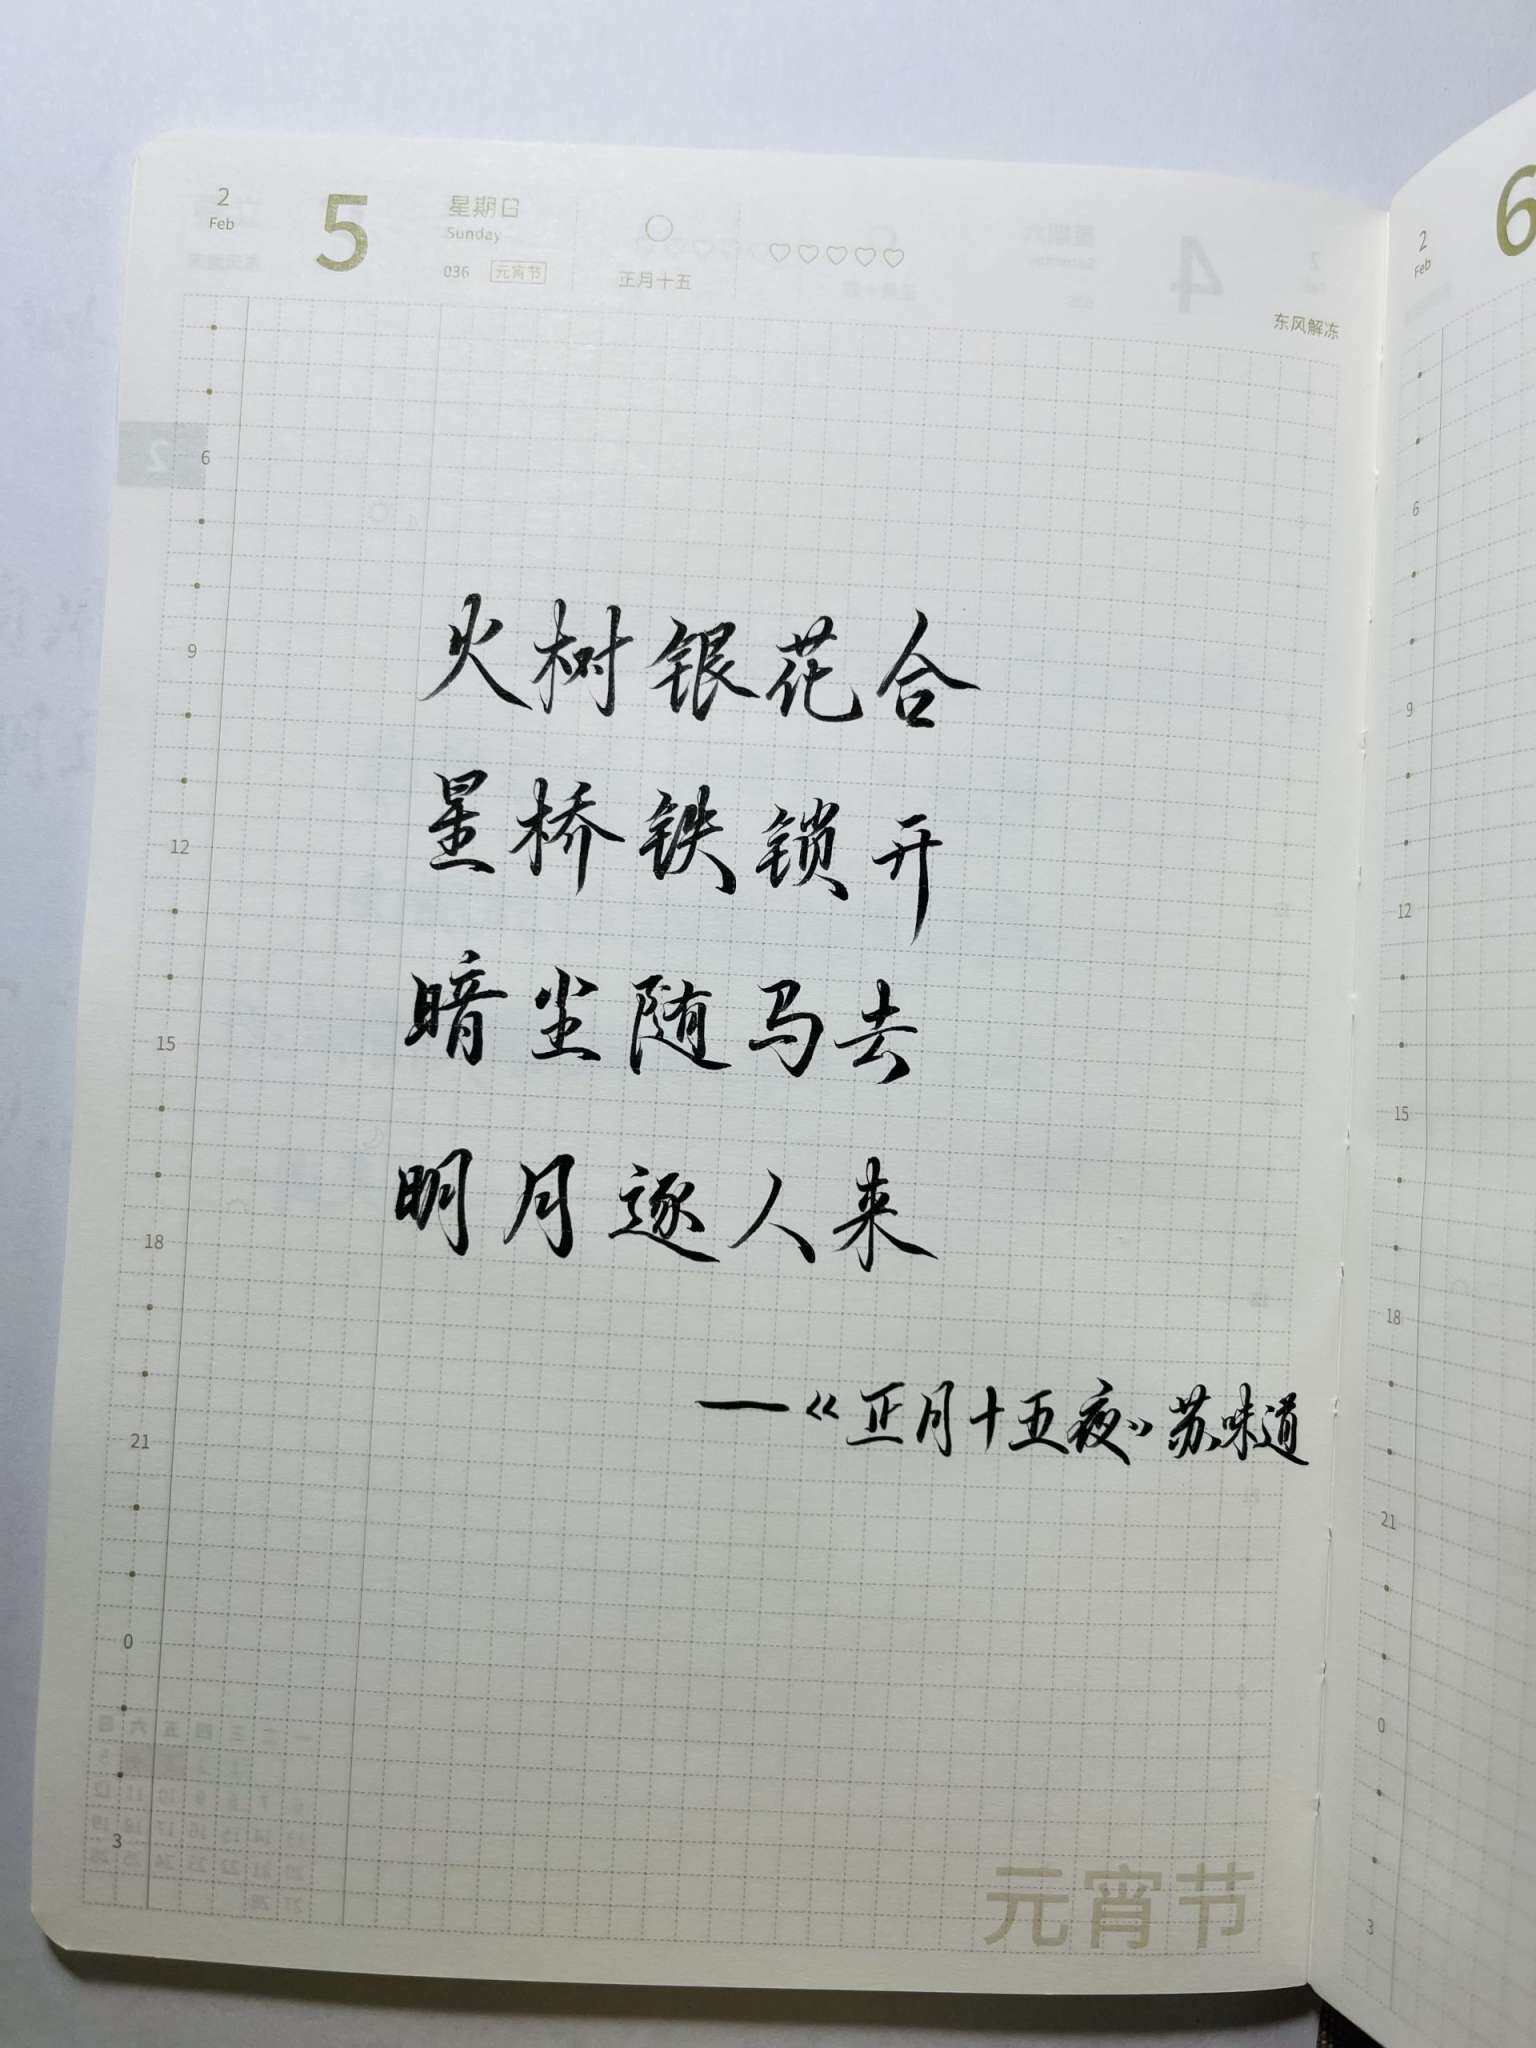 2 5 星期日
Feb Sunday
036 元宵节 正月十五
东风解冻
火树银花合
星桥铁锁开
暗尘随马去
明月逐人来
——《正月十五夜》苏味道
元宵节
6
9
12
15
18
21
0
3
2 6
Feb
6
9
12
15
18
21
0
3